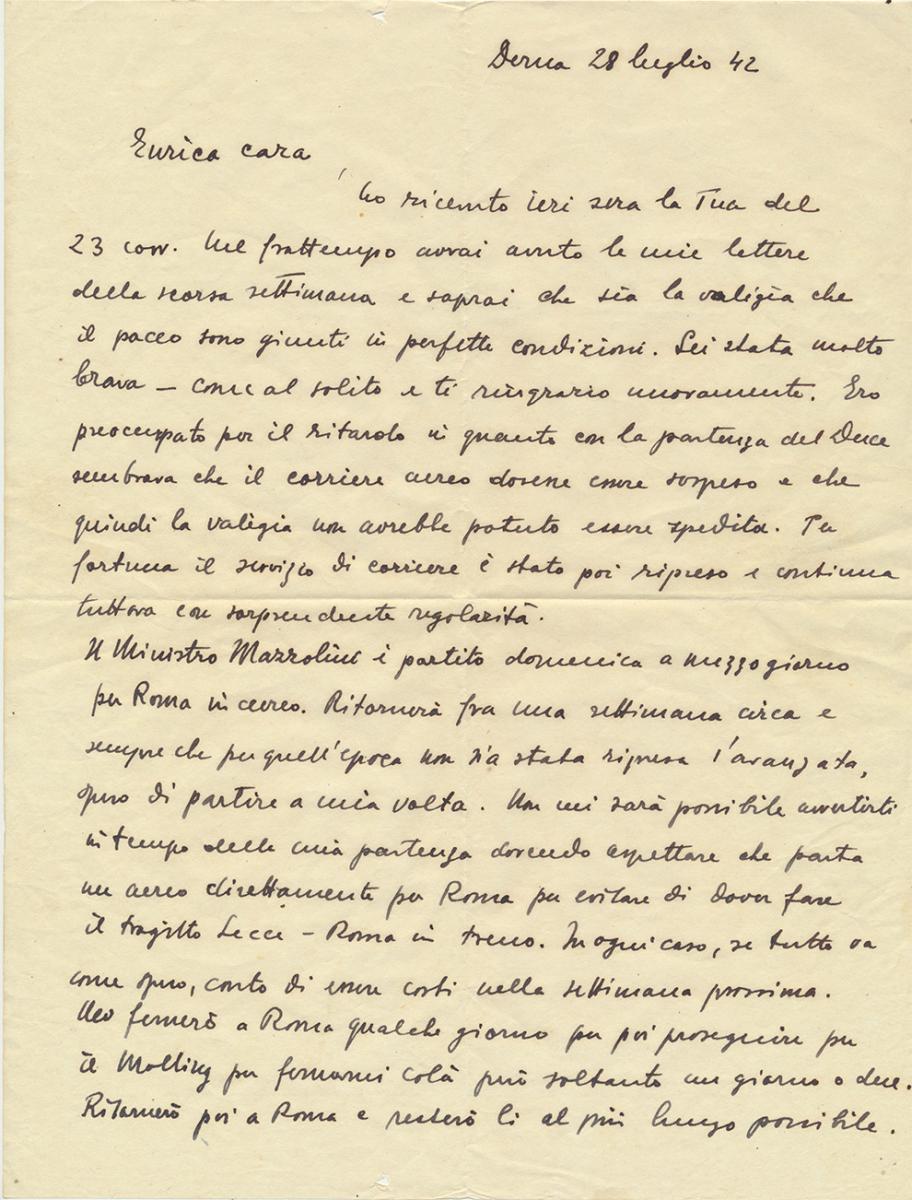 Derna 28 luglio 42
Enrica cara,
ho ricevuto ieri sera la Tua del
23 corr. Nel frattempo avrai avuto le mie lettere
della scorsa settimana e saprai che sia la valigia che
il pacco sono giunti in perfette condizioni. Sei stata molto
brava – come al solito e ti ringrazio nuovamente. Ero
preoccupato per il ritardo in quanto con la partenza del Duce
sembrava che il corriere aereo dovesse essere sospeso e che
quindi la valigia non avrebbe potuto essere spedita. Per
fortuna il servizio di corriere è stato poi ripreso e continua
tuttora con sorprendente regolarità.
Il Ministro Mazzolini è partito domenica a mezzogiorno
per Roma in aereo. Ritornerà fra una settimana circa e
sempre che per quell'epoca non sia stata ripresa l'avanzata,
spero di partire a mia volta. Non mi sarà possibile avvertirti
in tempo della mia partenza dovendo aspettare che parta
un aereo direttamente per Roma per evitare di dover fare
il tragitto Lecce – Roma in treno. In ogni caso, se tutto va
come spero, conto di essere costì nella settimana prossima.
Mi fermerò a Roma qualche giorno per poi proseguire per
il Molling per fermarmi colà però soltanto un giorno o due.
Ritornerò poi a Roma e resterò lì al più lungo possibile.